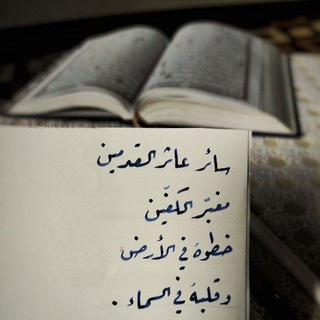 سائر عاثر القدمين
مغبّر الكفّين
خطوهُ في الأرض
وقلبهُ في السماء .